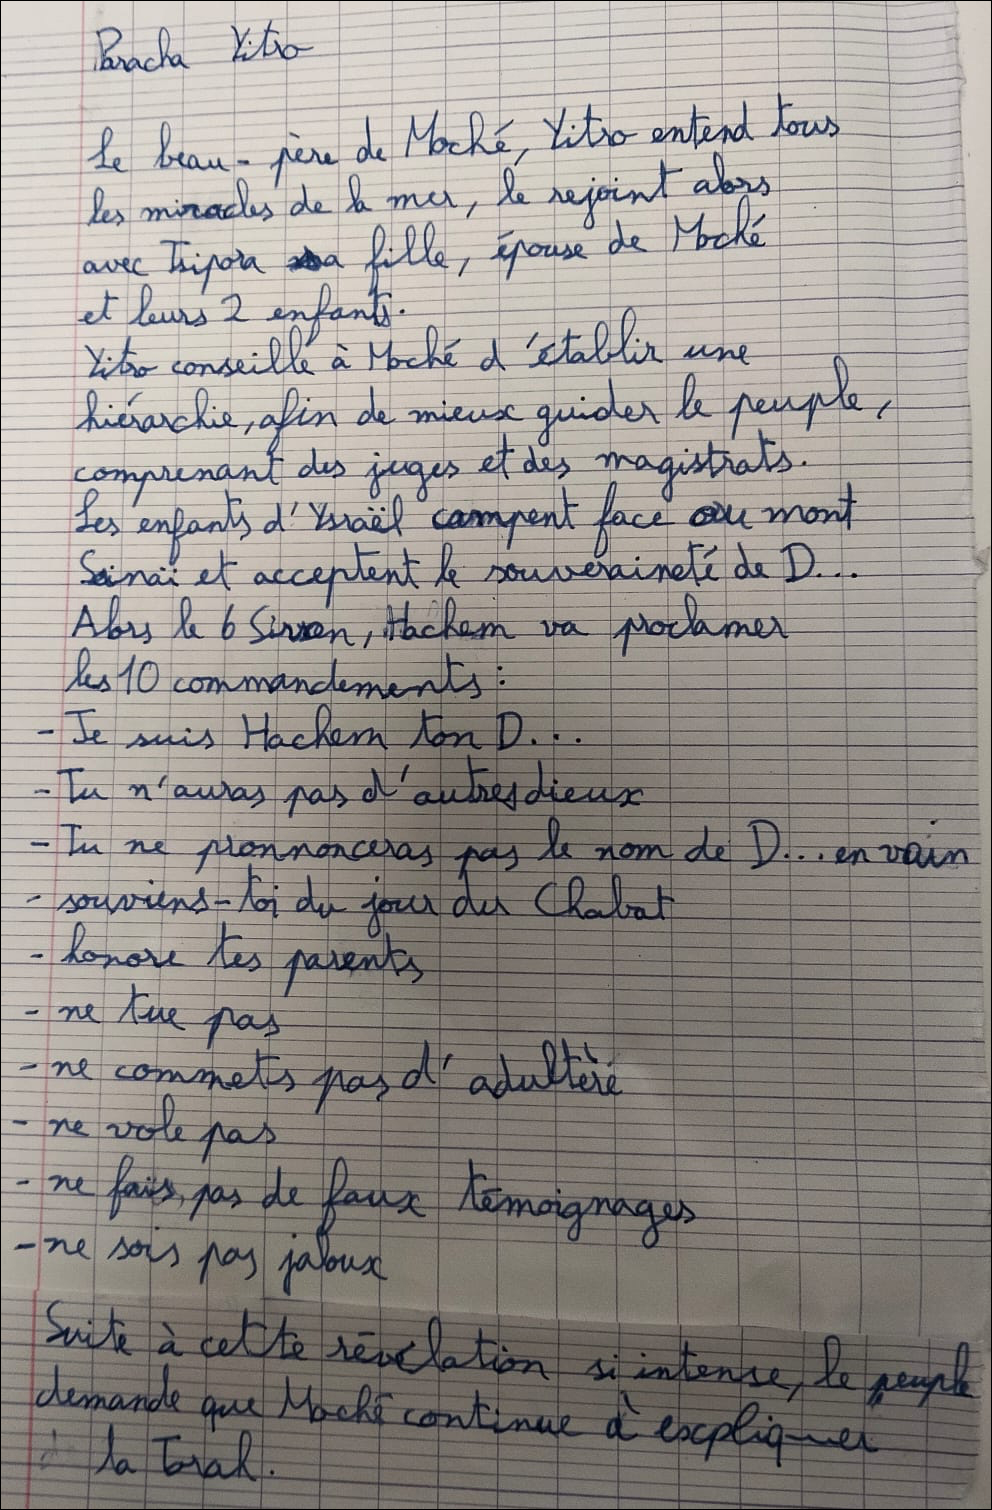 Paracha Yitro
Le beau-père de Moché, Yitro entend tous
les miracles de la mer, le rejoint alors
avec Tsipora sa fille, épouse de Moché
et leurs 2 enfants.
Yitro conseille à Moché d'établir une
hiérarchie, afin de mieux guider le peuple,
comprenant des juges et des magistrats.
Les enfants d'Ysraël campent face au mont
Sinaï et acceptent la souveraineté de D...
Alors le 6 Sivan, Hachem va proclamer
les 10 commandements :
- Je suis Hachem ton D...
- Tu n'auras pas d'autres dieux
- Tu ne pronnonceras pas le nom de D... en vain
- souviens-toi du jour du Chabat
- honore tes parents
- ne tue pas
- ne commets pas d'adultère
- ne vole pas
- ne fais pas de faux témoignages
- ne sois pas jaloux
Suite à cette révélation si intense, le peuple
demande que Moché continue à expliquer
la Torah.